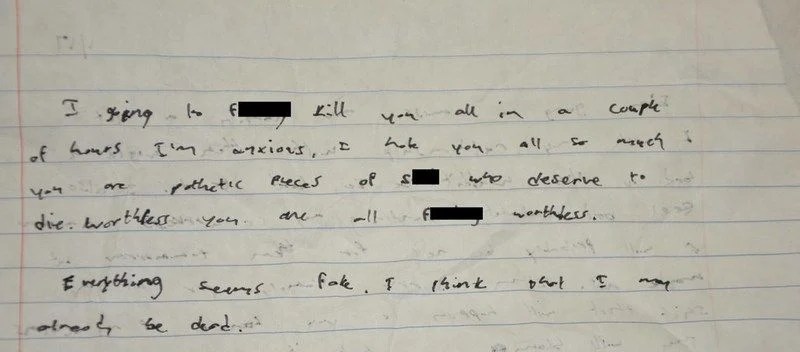 I going to f kill you all in a couple
of hours. I'm anxious, I hate you all so much
you are pathetic pieces of s who deserve to
die. Worthless you are all f worthless.
Everything seems fake. I think that I may
already be dead.